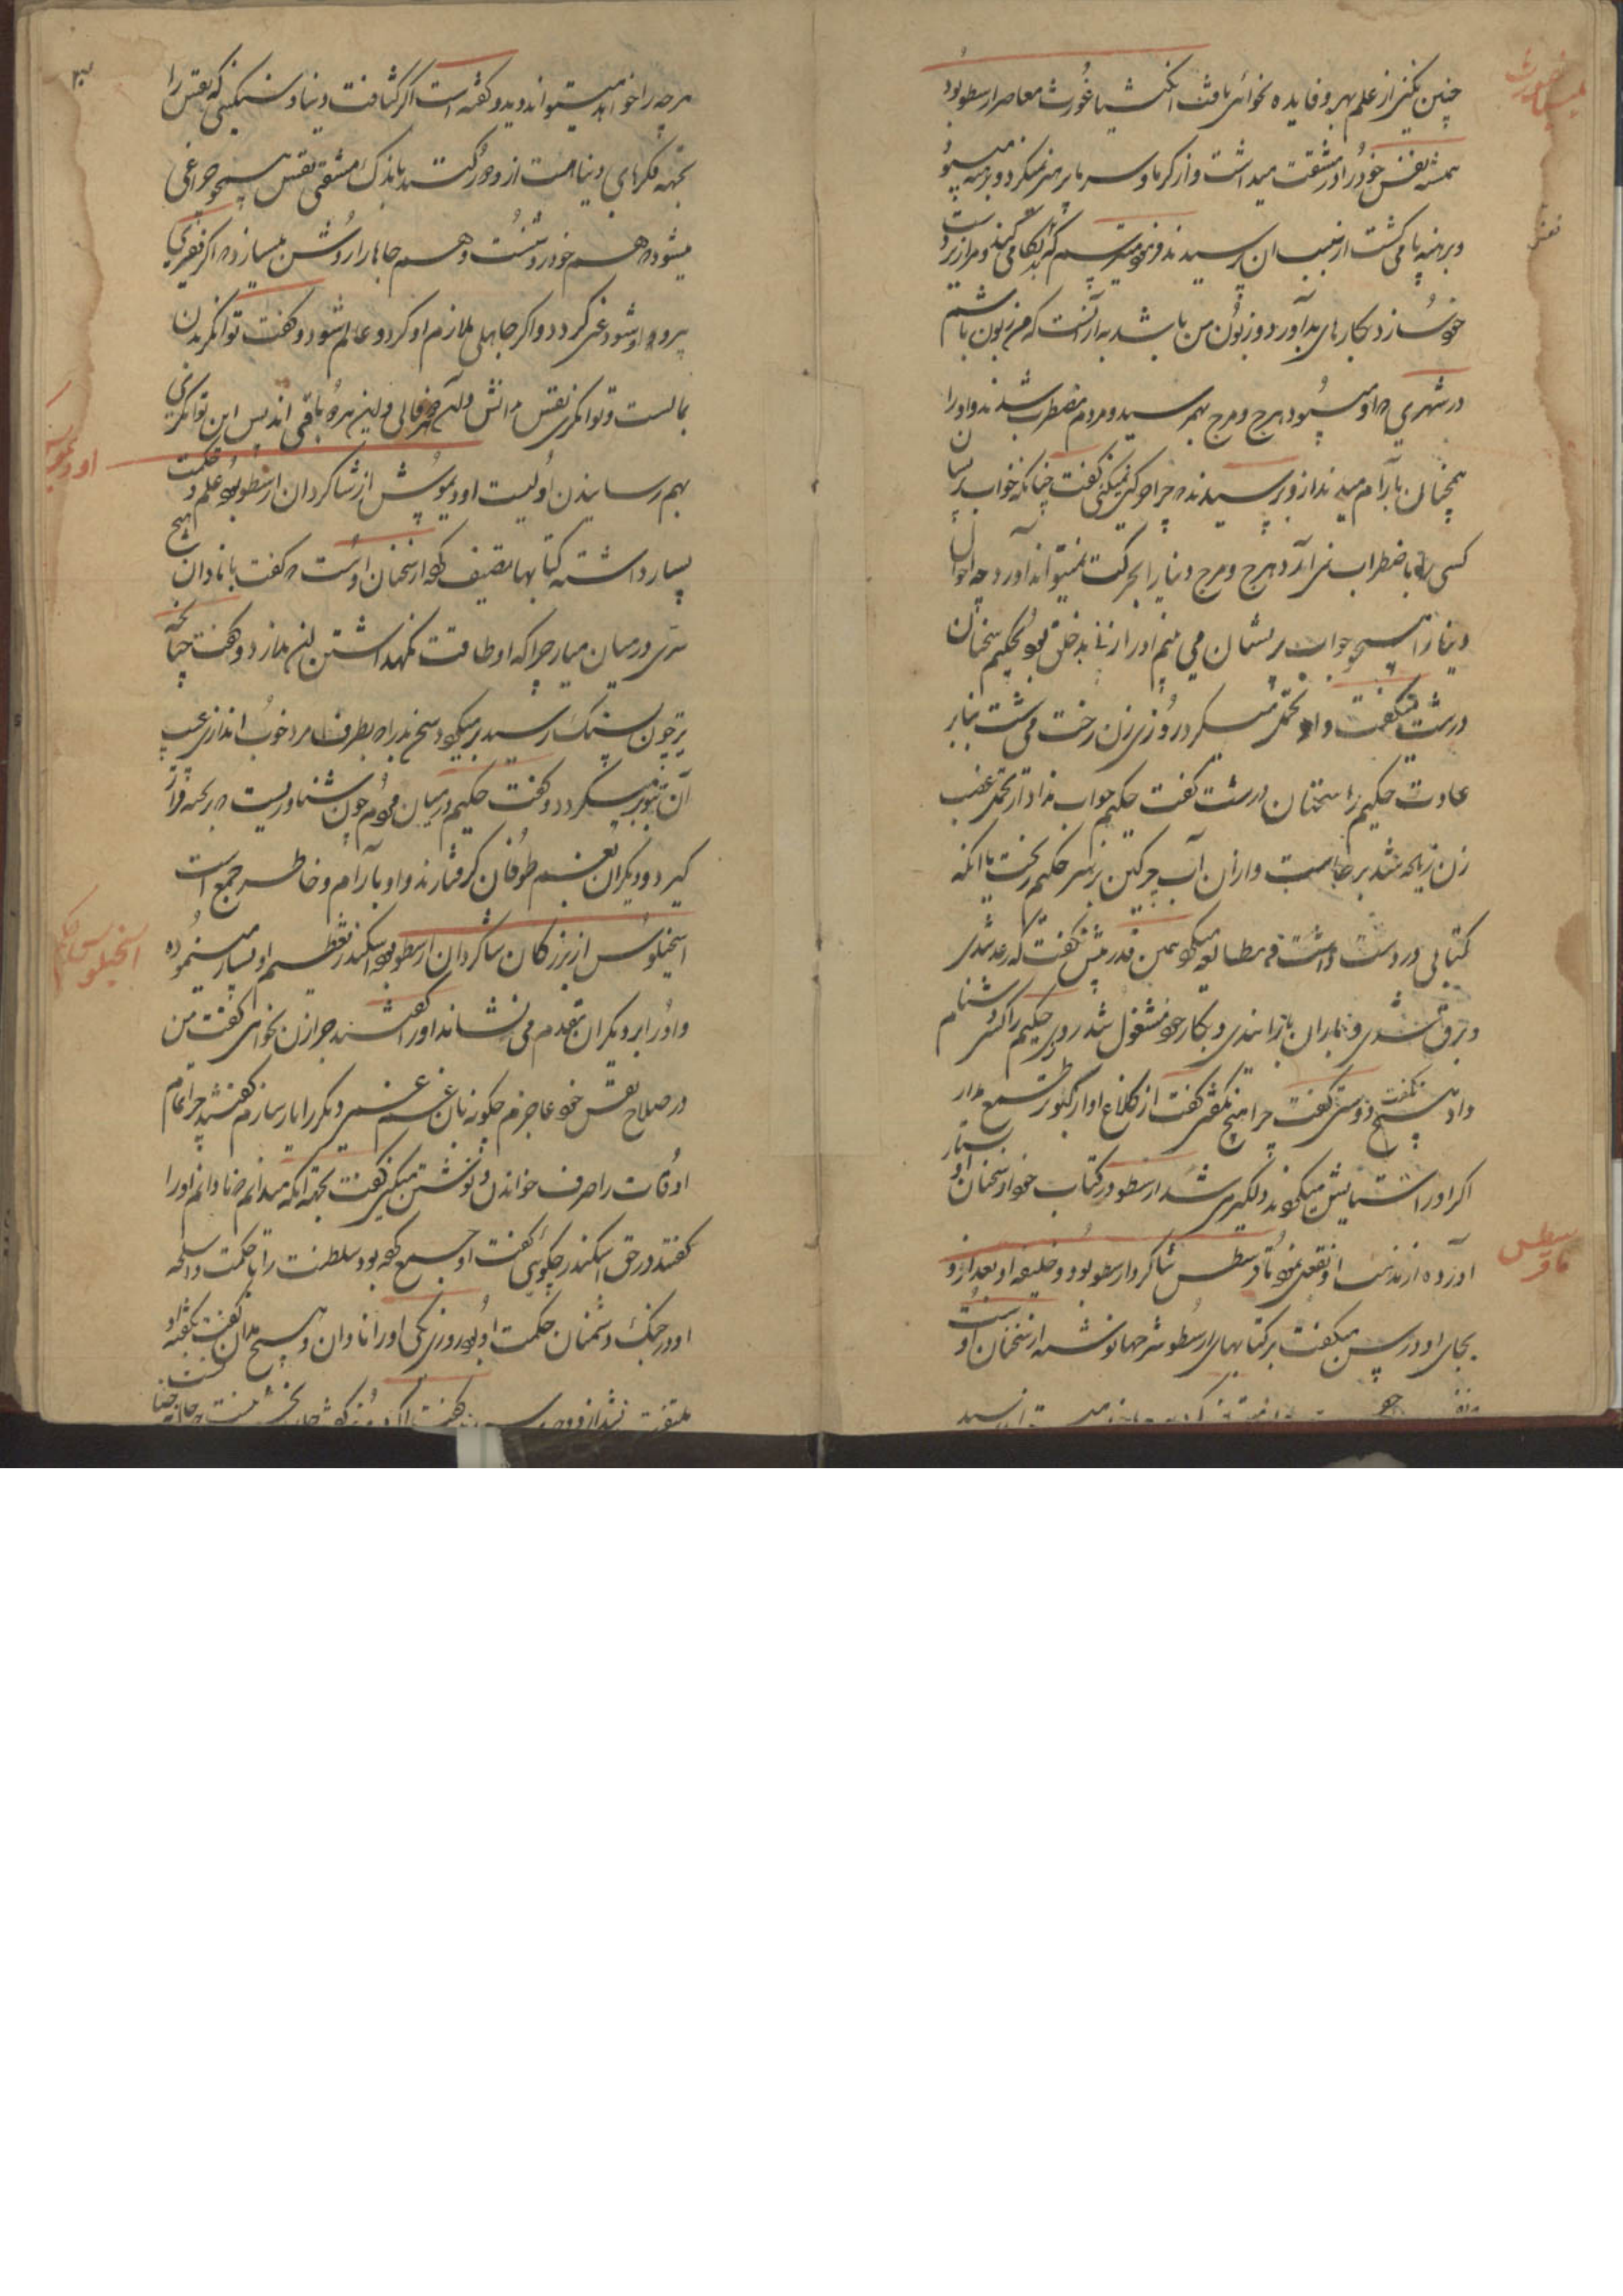 چنین نکنی از علم بهره و فایده نخواهی یافت انکشیاغورث معاصر ارسطو بود
همیشه نفس خود را در مشقت میداشت و از گرما و سرما پرهیز نمیکرد و برهنه میبود
و برهنه پا می گشت از سبب آن پرسیدند فرمود میترسم که بد نگاهی کند و مرا زیردست
خود سازد و بکارهای بد آورد و زبون من باشد به از آنست که من زبون باشم
در شهری که او میبود هرج و مرج بهم رسید و مردم مضطرب شدند و او را
همچنان بآرام میدیدند ازو پرسیدند که چرا حرکتی نمیکنی گفت چنانکه خواب پریشان
کسی را باضطراب نمی آرد هرج و مرج دنیا مرا بحرکت نمیتواند آورد چه احوال
دنیا را همچو خواب پریشان می بینم او را زنی بدخلق بود بحکیم سخنان
درشت میگفت و او تحمل میکرد روزی زن رخت می شست بنابر
عادت حکیم را سخنان درشت گفت حکیم جواب نداد از تحمل غضب
زن زیاده شد برخاست و از آن آب چرکین بر سر حکیم ریخت با آنکه
کتابی در دست داشت و مطالعه میکرد همین قدر بیش نگفت که رعد شدی
و برق شدی و بباران باز آمدی و بکار خود مشغول شد روزی حکیم را کسی دشنام
داد هیچ نگفت دوستی گفت چرا هیچ نگفتی گفت از کلاغ آواز کبوتر طمع مدار
اگر او را ستایش میکردند دلگیر می شد ارسطو در کتاب خود از سخنان او بسیار
آورده از مذهب او نقل نموده ثاوفرسطس شاگرد ارسطو بود و خلیفه او بعد ازو
بجای او درس میگفت بر کتابهای ارسطو شرحها نوشته از سخنان اوست
هرچه را خواهد میتواند دید و گفته است اگر کثافت دنیا و سنگینی که نفس را
بجهه فکرهای دنیا هست ازو دور کنند باندک مشقتی نفس همچو چراغی
میشود که هم خود روشنست و هم جاها را روشن میسازد که اگر فقیری
پیرو او شود غنی گردد و اگر جاهلی ملازم او گردد عالم شود و گفت توانگری بدن
بمالست و توانگری نفس بدانش و آن فانی و این باقی اند پس این توانگری
بهم رسانیدن اولیست اودیموش از شاگردان ارسطو بود علم و حکمت
بسیار داشته کتابها تصنیف کرده از سخنان اوست که گفت با نادان هیچ
سری در میان میار چرا که او طاقت نگهداشتن این ندارد و گفت چنانچه
تیر چون بسنگ رسید برمیگردد سخن بد را که بطرف مرد خوب اندازی عیب
آن بتو برمیگردد و گفت حکیم در میان مردم چون شناوریست که بر تخته قرار
گیرد و دیگران بغم طوفان گرفتارند و او بآرام و خاطر جمع است
اسخیلوس از بزرگان شاگردان ارسطو بود اسکندر تعظیم او بسیار مینموده
و او را بر دیگران مقدم می نشاند او را گفتند چرا زن نخواهی گفت من
در صلاح نفس خود عاجزم چگونه بآن غم غمی دیگر را یار سازم گفتند چرا تمام
اوقات را صرف خواندن و نوشتن میکنی گفت بجهه آنکه میدانم که نادانم او را
گفتند در حق اسکندر چگوئی گفت او جمع کرده بود سلطنت را با حکمت و اسلحه
او در جنگ دشمنان حکمت او بود روزی یکی او را نادان و هیچ مدان گفت بگفته او
ملتفت نشد
اودیموس
اسخیلوس حکیم